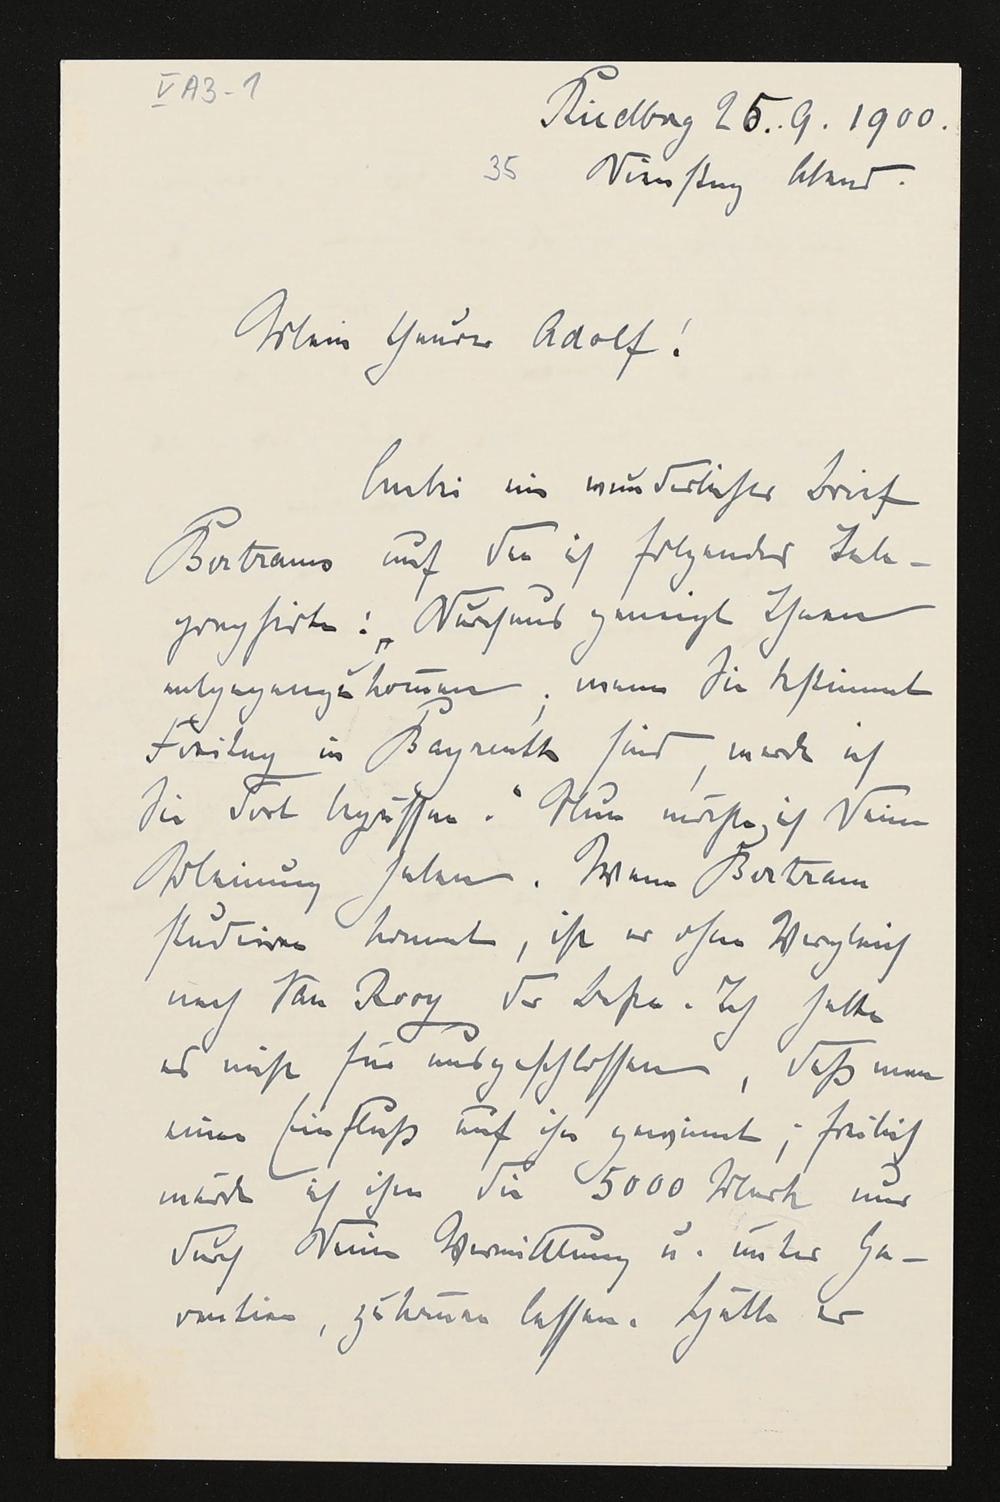 V A3-1
Riedberg 25. 9. 1900.
35 Dienstag Abend.
Mein theurer Adolf!
Anbei ein wunderlicher Brief
Bertrams auf den ich folgendes Tele-
graphirte: „Durchaus geneigt Ihnen
entgegenzukommen, wenn Sie bestimmt
Freitag in Bayreuth sind, werde ich
Sie dort begrüssen." Nun möchte ich Deine
Meinung haben. Wenn Bertram
studieren kommt, ist er ohne Vergleich
nach Van Rooy der Beste. Ich halte
es nicht für ausgeschlossen, daß man
einen Einfluß auf ihn gewinnt; freilich
würde ich ihm die 5000 Mark nur
durch Deine Vermittlung u. unter Ga-
rantien, zukommen lassen. Hätte er